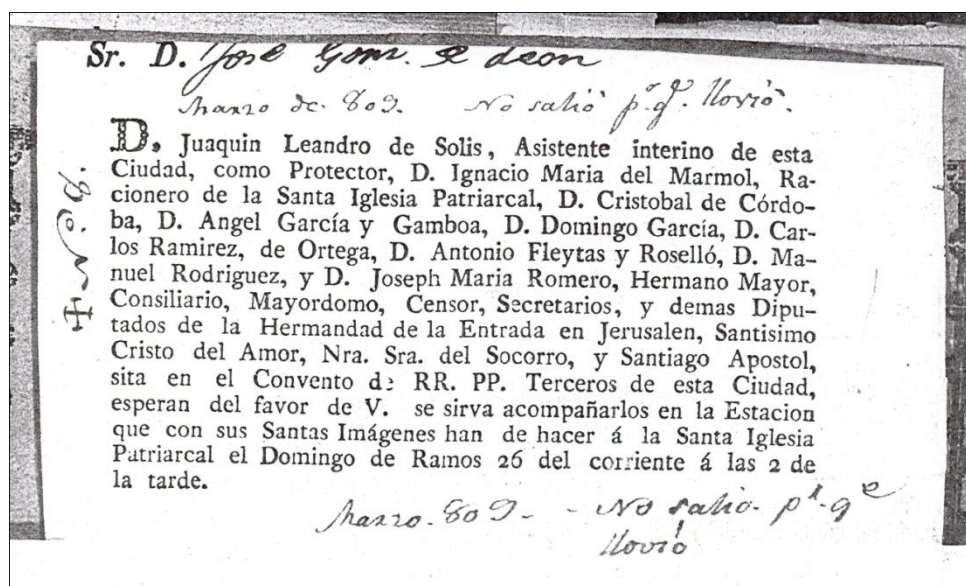 Sr. D. José Gonz. de Leon
Marzo de. 809. No salió pr. qe. llovió.
D. Juaquin Leandro de Solis, Asistente interino de esta
Ciudad, como Protector, D. Ignacio Maria del Marmol, Ra-
cionero de la Santa Iglesia Patriarcal, D. Cristobal de Córdo-
ba, D. Angel García y Gamboa, D. Domingo García, D. Car-
los Ramirez, de Ortega, D. Antonio Fleytas y Roselló, D. Ma-
nuel Rodriguez, y D. Joseph Maria Romero, Hermano Mayor,
Consiliario, Mayordomo, Censor, Secretarios, y demas Dipu-
tados de la Hermandad de la Entrada en Jerusalen, Santisimo
Cristo del Amor, Nra. Sra. del Socorro, y Santiago Apostol,
sita en el Convento de RR. PP. Terceros de esta Ciudad,
esperan del favor de V. se sirva acompañarlos en la Estacion
que con sus Santas Imágenes han de hacer á la Santa Iglesia
Patriarcal el Domingo de Ramos 26 del corriente á las 2 de
la tarde.
Marzo. 809. - - No salio. pr. qe
llovió